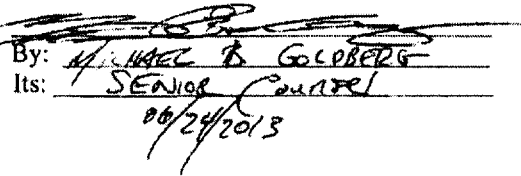 By: MICHAEL B GOLDBERG
Its: SENIOR Counsel
06/24/2013